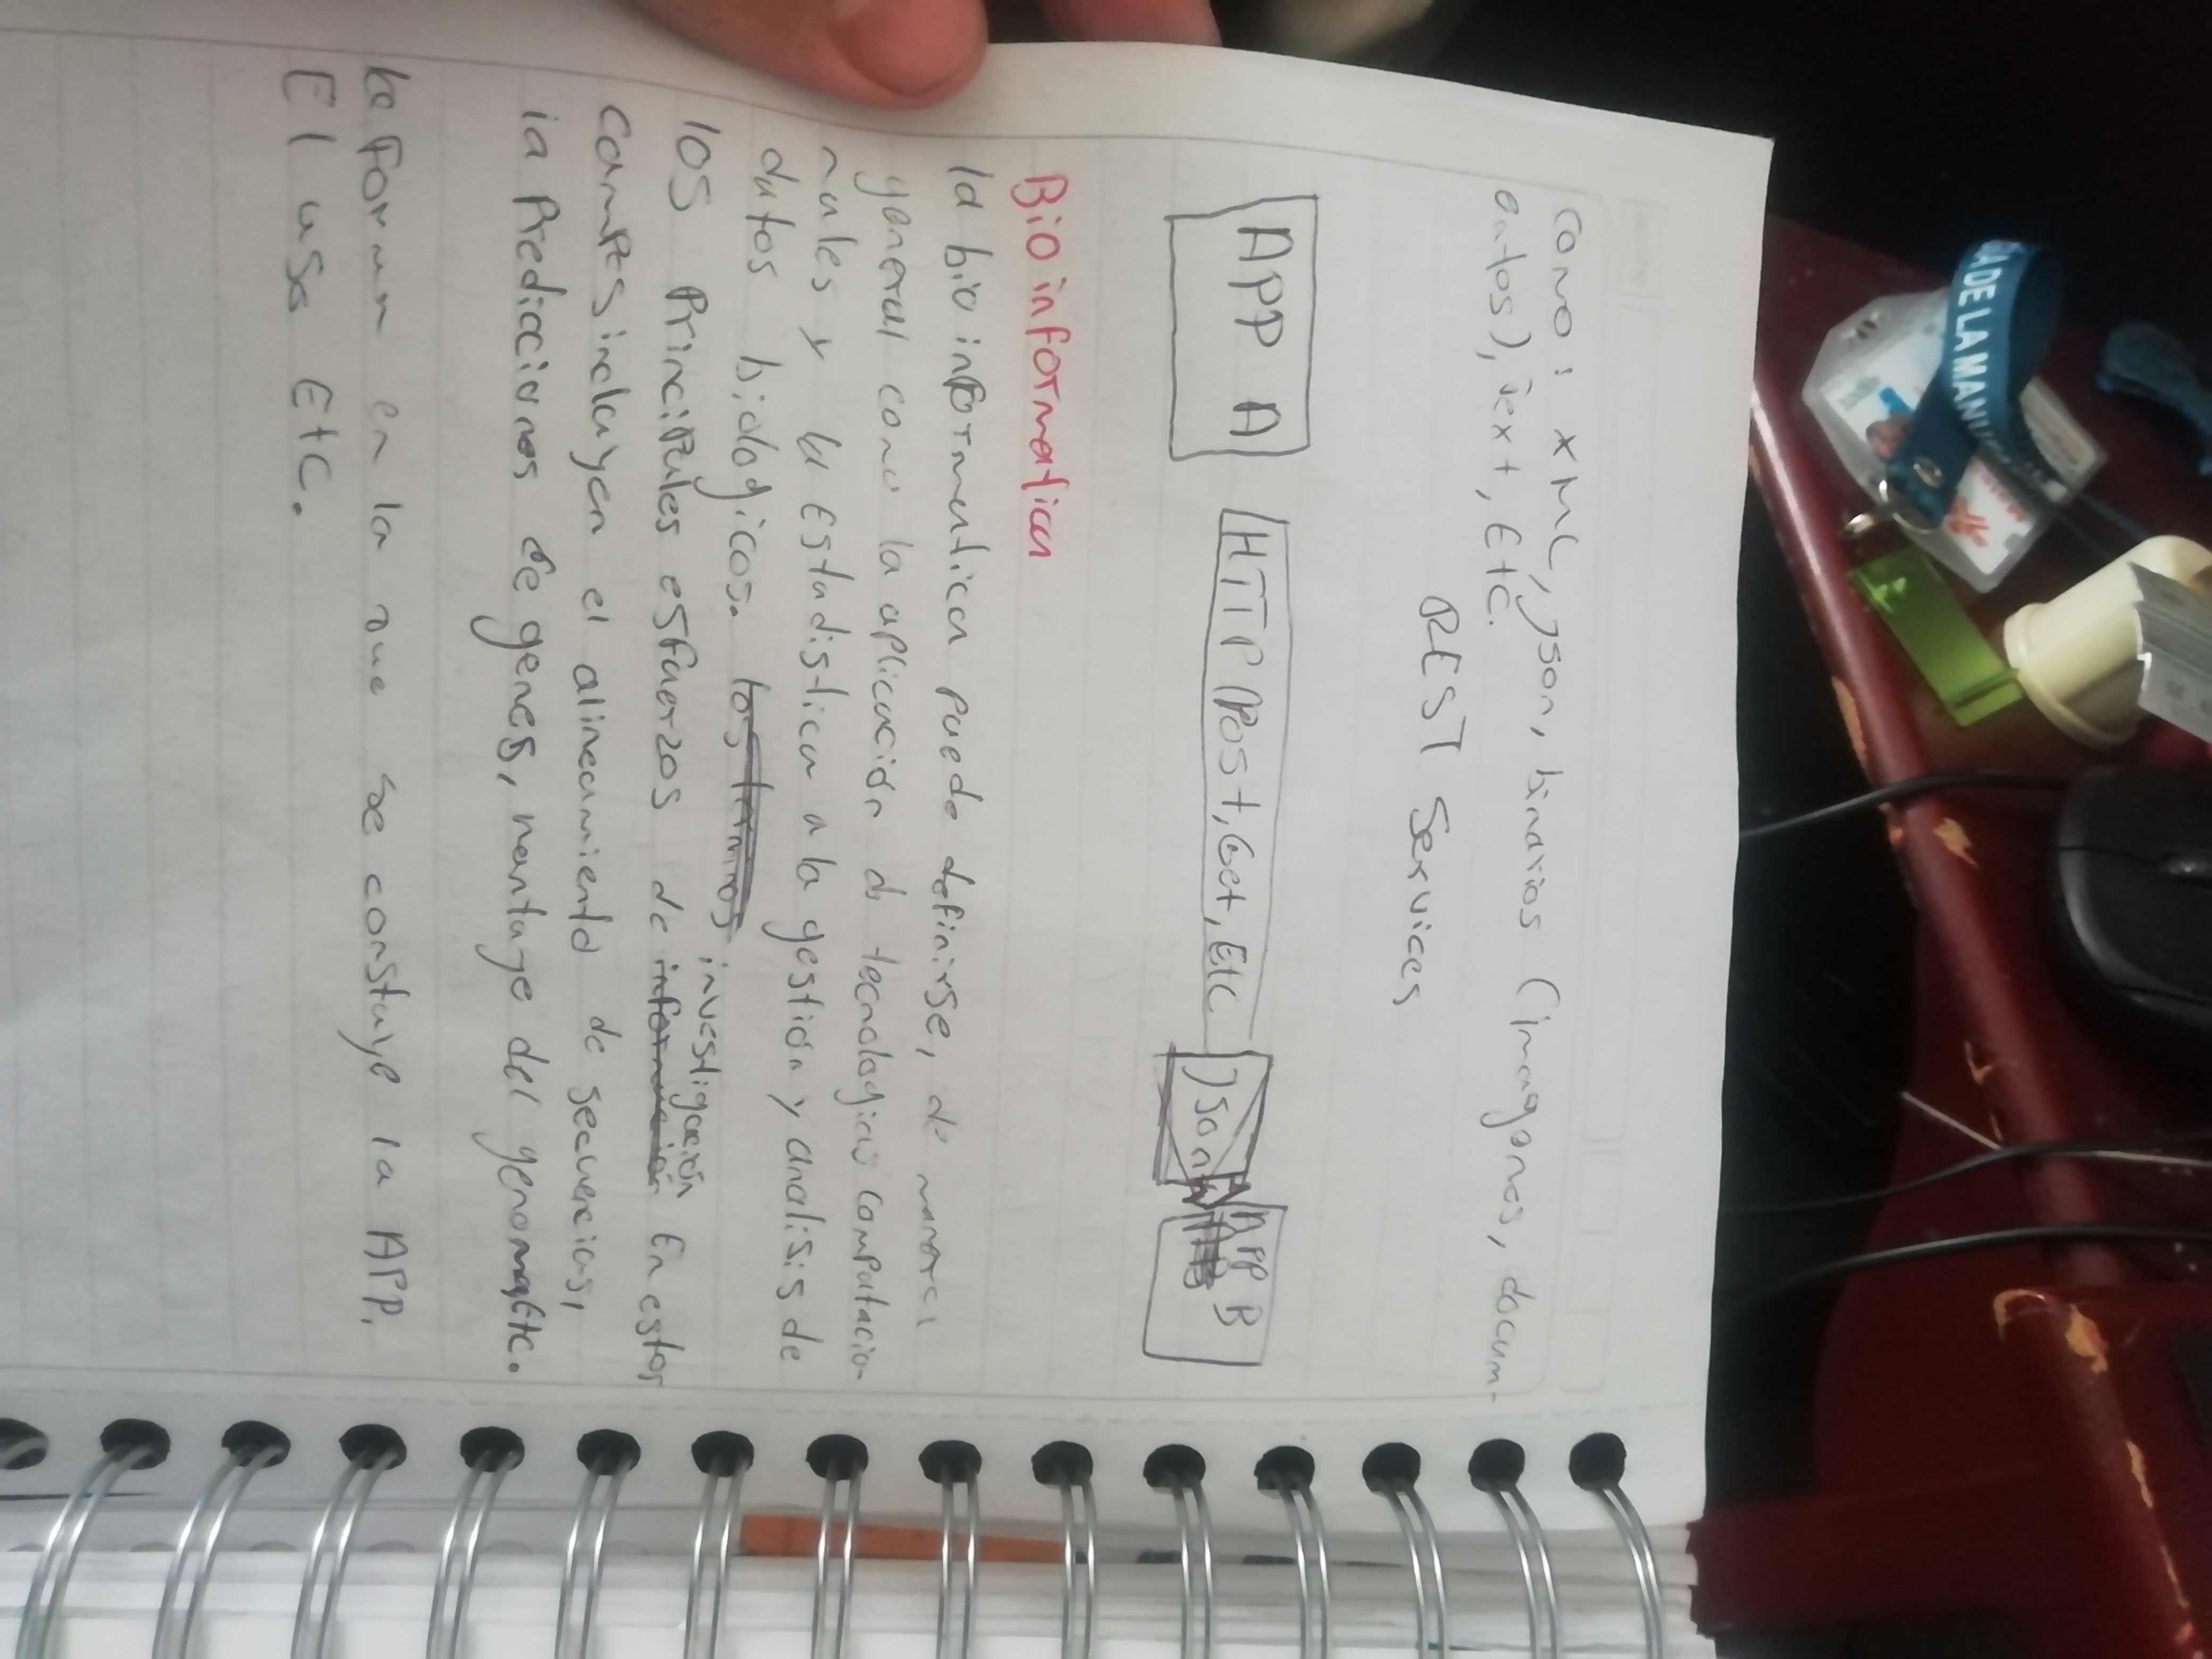 como: XML, json, binarios (imagenes, docum-
entos), text, Etc.
REST Services
APP A
HTTP (Post, Get, Etc
json
APP B
Bioinformatica
la bioinformatica puede definirse, de manera
general como la aplicación de tecnologias computacio-
nales y la Estadistica a la gestión y analisis de
datos biologicos. los
investigación
los Principales esfuerzos de información En estos
campos incluyen el alineamiento de secuencias,
la Predicciones de genes, mentage del genoma Etc.
La Forma en la que se constuye la APP.
El uso Etc.
A DE LA MANU